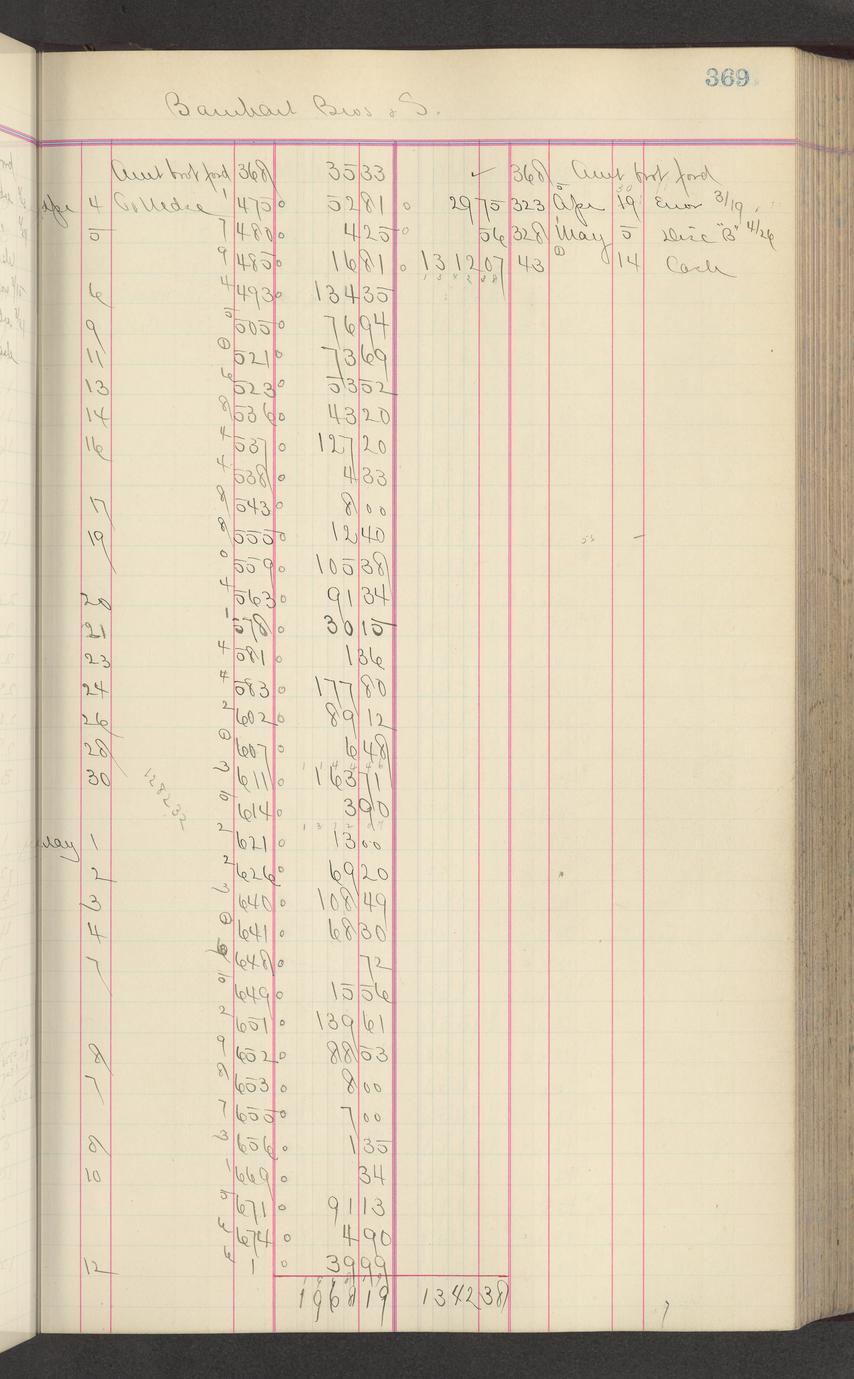 369
Barnhart Bros & S.
Amt brot ford 368 35 33 ✓ 368 Amt brot ford
Apr 4 Co Mdse 1 475 52 81 29 75 323 Apr 19 Error 3/19
5 7 480 4 25 56 328 May 5 Disc "B" 4/26
9 485 16 81 1312 07 43 14 Cash
6 4 493 134 35 1342 38
9 5 505 76 94
11 0 521 73 69
13 6 523 53 52
14 8 536 43 20
16 4 537 127 20
4 538 4 33
17 8 543 8 00
19 8 555 12 40
0 559 105 38
20 4 563 91 34
21 1 578 30 15
23 4 581 1 36
24 4 583 177 80
26 2 602 89 12
28 0 607 6 48
30 3 611 163 71
128232
5 614 3 90
May 1 2 621 13 00
2 2 626 69 20
3 3 640 108 49
4 0 641 68 30
7 6 648 72
5 649 15 56
2 651 139 61
8 9 652 88 53
7 8 653 8 00
7 655 7 00
8 3 656 1 35
10 1 669 34
5 671 91 13
6 674 4 90
12 6 1 39 99
1968 19 1342 38